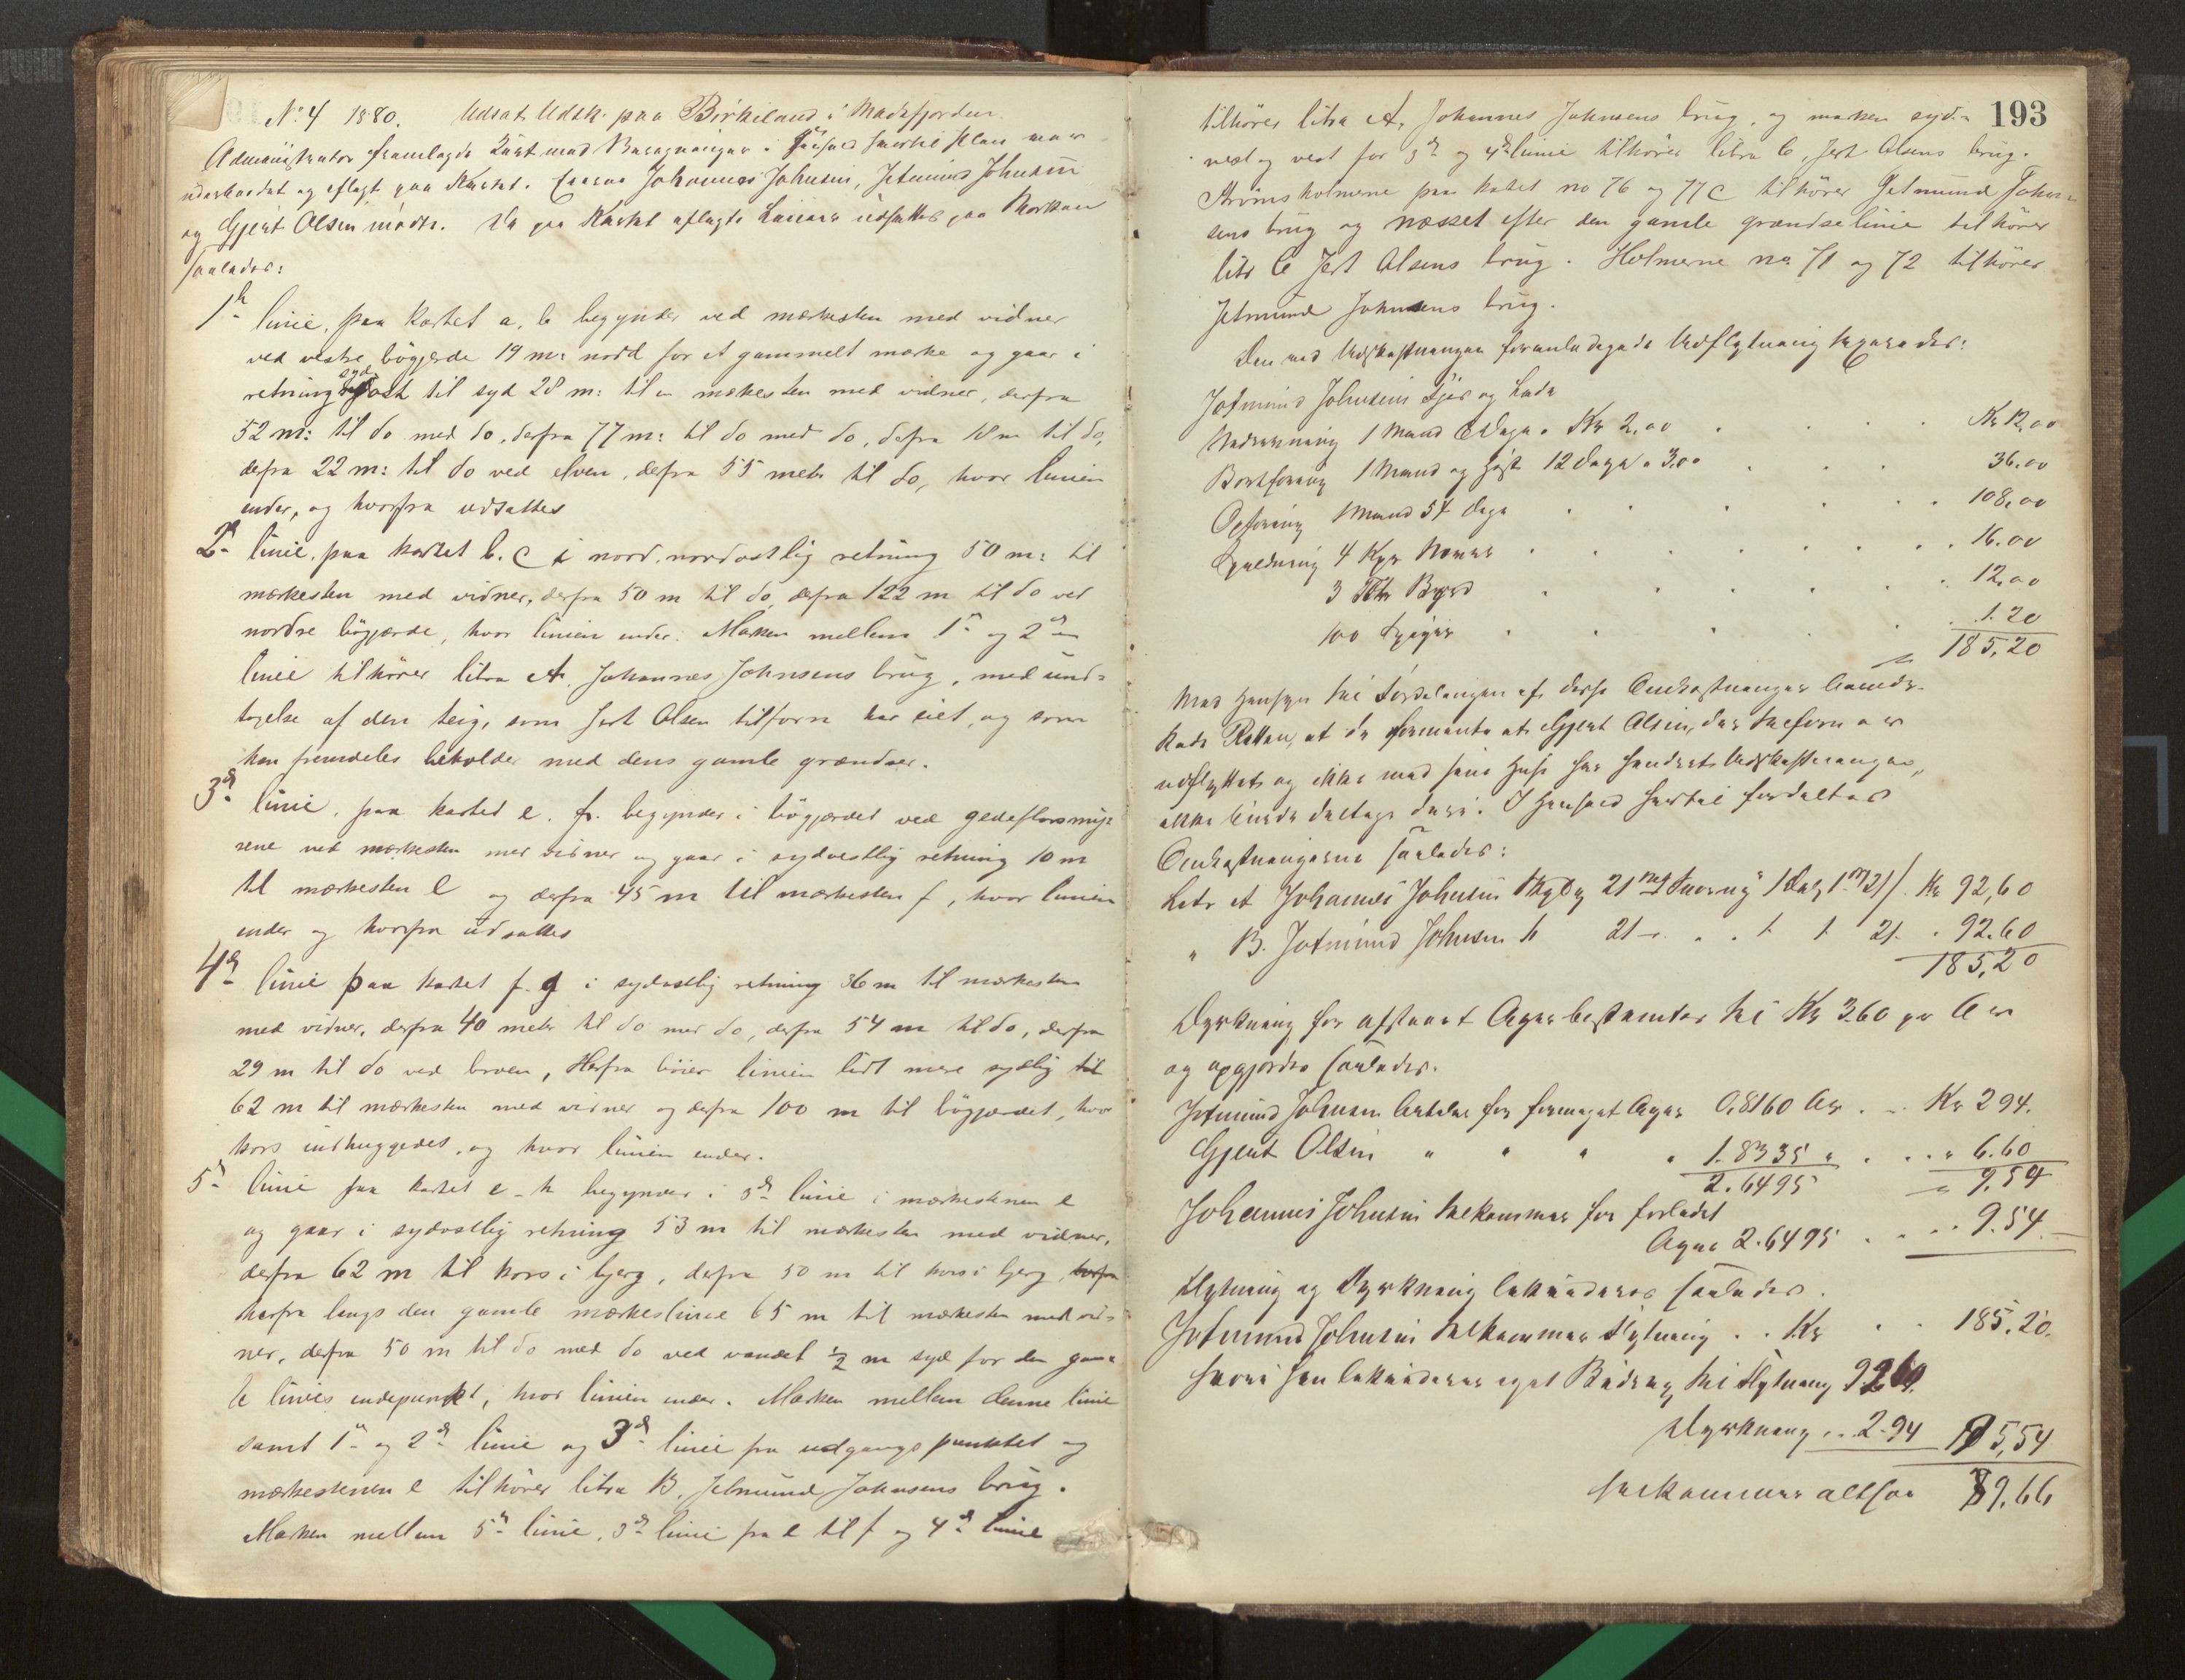 No 4 1880. Udsat Udsk. paa Birkeland i Madsfjorden
Administrator fremlagde Kart med Beregninger i Henhold hvortil Plan var
udarbeidet og aflagt paa Kartet. Eierne Johannes Johnsen, Jetmund Johnsen
og Gjert Olsen mødte. De paa Kartet aflagte Linier udsattes paa Marken
saaledes:
1ste linie, paa kartet a, b begynder ved merkesten med vidner
ved vestre bøgjerde 19 m: nord for et gammelt merke og gaar i
retning syd ost til syd 28 m: til en merkesten med vidner, derfra
52 m: til do med do, derfra 77 m: til do med do, defra 18 m til do,
defra 22 m: til do ved elven, defra 55 meter til do, hvor linien
ender, og hvorfra udsattes
2den linie. paa kartet b. c i nord. nordostlig retning 50 m: til
merkesten med vidner, derfra 50 m til do, derfra 122 m til do ved
nordre bøgjerde, hvor linien ender. Marken mellem 1ste og 2den
linie tilhører litra A. Johannes Johnsens brug, med und=
tagelse af den teig, som Jert Olsen tilforn har eiet, og som
han fremdeles beholder med dens gamle grændser.
3die linie. paa kartet e. f. begynder i bøgjerdet ved gedeflorsmy=
rene ved merkesten med vidner og gaar i sydvestlig retning 10 m
til merkesten l og derfra 45 m til merkesten f, hvor linien
ender og hvorfra udsattes
4de linie paa kartet f. g i sydostlig retning 36 m til merkesten
med vidner, derfra 40 meter til do med do, derfra 54 m til do, derfra
29 m til do ved broen, Herfra bøier linien lidt mere sydlig til
62 m til merkesten med vidner og derfra 100 m til bøgjerdet, hvor
kors indhuggedes, og hvor linien ender.
5te linie paa kartet e - h begynder i 3die linie i merkestenen l
og gaar i sydostlig retning 53 m til merkesten med vidner,
defra 62 m til kors i bjerg, derfra 50 m til kors i bjerg, herfra
herfra langs den gamle merkeslinie 65 m til merkesten med vid=
ner, derfra 50 m til do med do ved vandet 1/2 m syd for den gam=
le linies endepunkt, hvor linien ender. Marken mellem denne linie
samt 1ste og 2den linie og 3die linie fra udgangspunktet og
merkestenen l tilhører litra B. Jetmund Johnsens brug.
Marken mellem 5te linie, 3die linie fra l til f og 4de linie
193
tilhører litra A, Johannes Johnsens brug, og marken syd=
vest og vest for 3die og 4de linie tilhører litra C, Jert Olsens brug.
Strømsholmerne paa kartet no 76 og 77 c tilhører Jetmund John=
sens brug og næsset efter den gamle grændselinie tilhører
litr C Jert Olsens brug. Holmerne no 71 og 72 tilhører
Jetmund Johnsens brug.
Den ved Udskiftningen foranledigede Udflytning beregnedes:
Jetmund Johnsens Fjøs og Lade
Nedrivning 1 Mand 6 Dage a Kr 2,00 . . . . Kr 12,00
Bortføring 1 Mand og Hest 12 Dage a 3,00 . . . 36.00
Opføring 1 Mand 54 Dage . . . . . 108,00
Spildning 4 Kgr Næver . . . . . . 16.00
3 Tylt Bord . . . . . 12,00
100 Spiger . . . . . 1.20
185,20
Med Hensyn til Fordelingen af disse Omkostninger bemær-
kede Retten, at de formente at Gjert Olsen, der tilforn var
udflyttet og ikke med sine Huse har hindret Udskiftningen,
ikke burde deltage deri. I Henhold hertil fordeltes
Omkostningerne saaledes:
Litr A Johannes Johnsen Skyld 21 . . Kr 92,60
" B. Jetmund Johnsen 21 . . 1 1 21 . 92.60
185,20
Dyrkning for afstaaet Ager bestemtes til Kr 3.60 pr Ar
og opgjordes saaledes.
Jetmund Johnsen betaler for formeget Ager 0,8160 Ar . .. Kr 2 94.
Gjert Olsen " " " " 1.8335 " . .. " 6.60
2.6495 " 9.54
Johannes Johnsen tilkommer for forladt
Ager 2.6495 . . .. 9.54
Flytning og Dyrkning likvideres saaledes.
Jetmund Johnsen tilkommer Flytning . . Kr . . 185.20.
hvori han likviderer eget Bidrag til Flytning 92.60.
Dyrkning .. 2.94 95,54
tilkommer altsaa 89.66